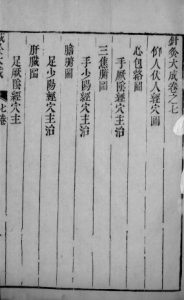 針灸大成卷之七
仰人伏人經穴圖
心包絡圖
手厥陰經穴主治
三焦腑圖
手少陽經穴主治
膽腑圖
足少陽經穴主治
肝臟圖
足厥陰經穴主
大成
七卷